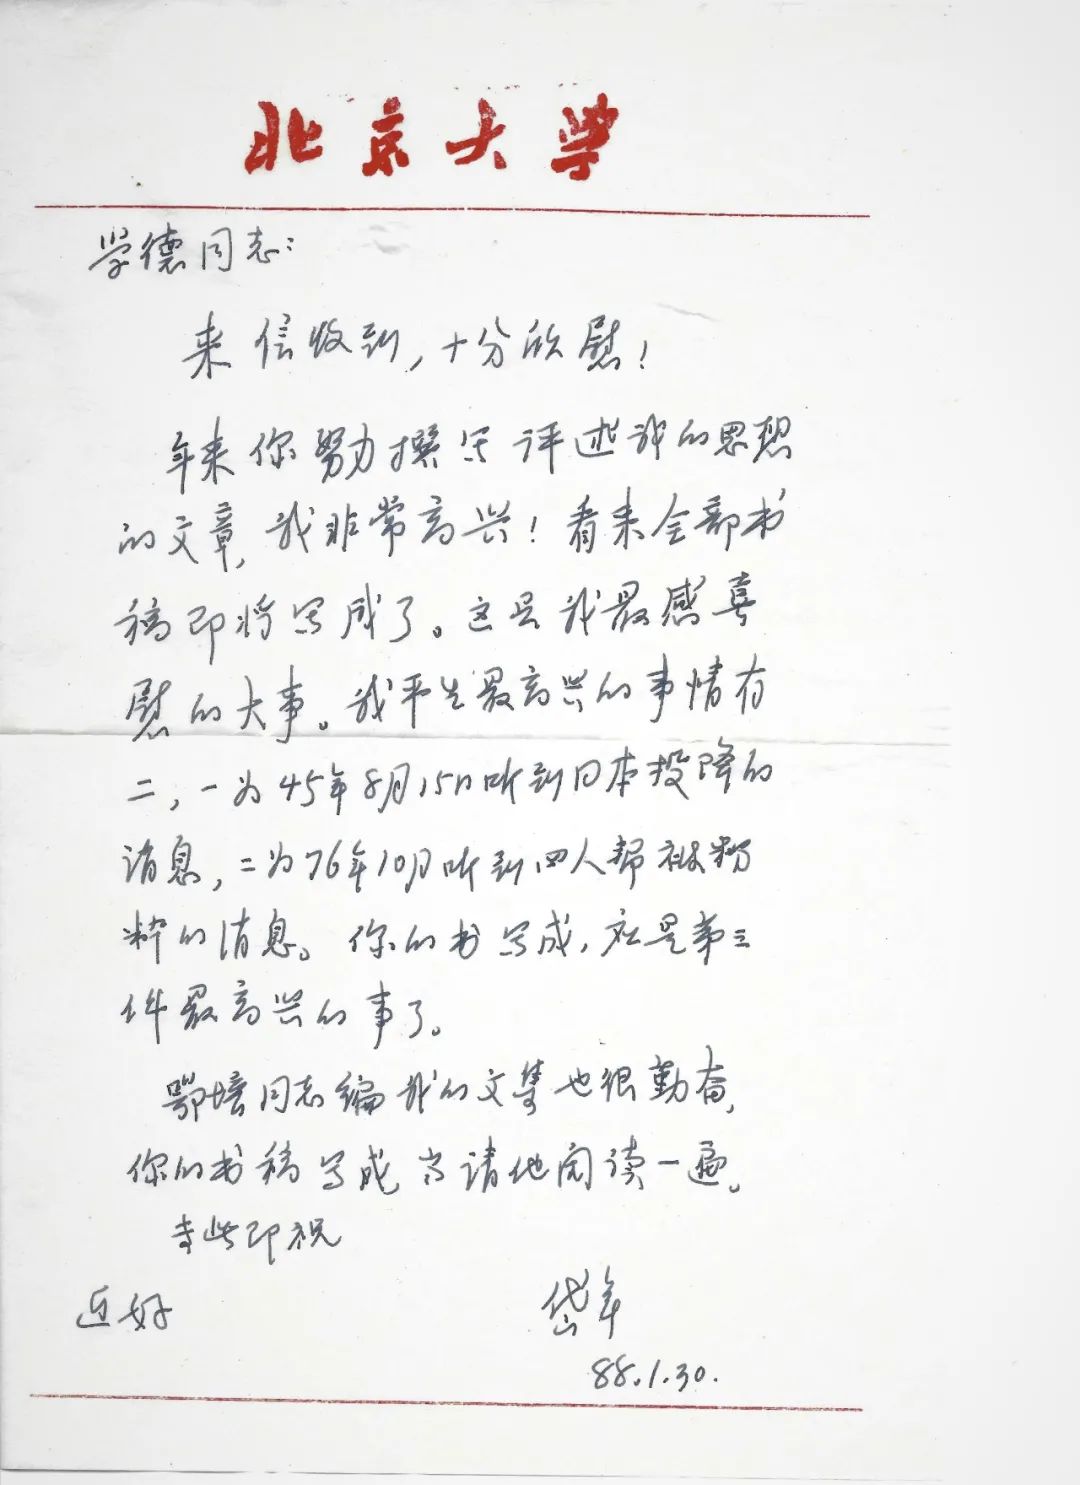 北京大学
学德同志：
来信收到，十分欣慰！
年来你努力撰写评述我的思想
的文章，我非常高兴！看来全部书
稿即将写成了。这是我最感喜
慰的大事。我平生最高兴的事情有
二，一为45年8月15日听到日本投降的
消息，二为76年10月听到四人帮被粉
粹的消息。你的书写成，就是第三
件最高兴的事了。
鄂培同志编我的文集也很勤奋，
你的书稿写成可请他阅读一遍。
专此即祝
近好
岱年
88.1.30.